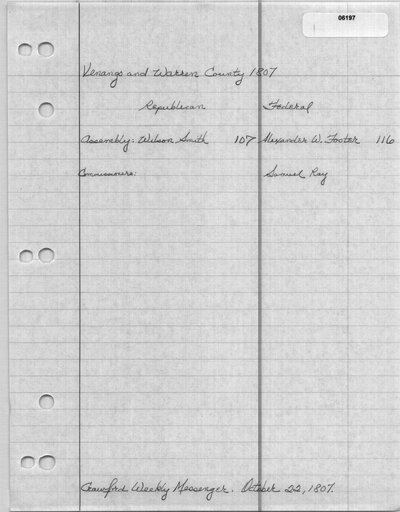 06197
Venango and Warren County 1807
Republican Federal
Assembly: Wilson Smith 107 Alexander W. Foster 116
Commissioners: Samuel Ray
Crawford Weekly Messenger. October 22, 1807.